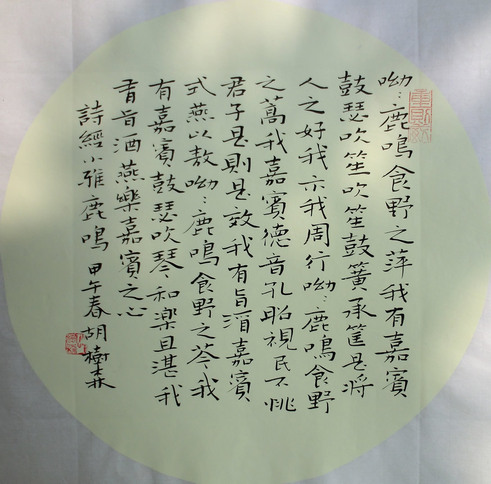 呦:鹿鳴食野之萍我有嘉賓
鼓瑟吹笙吹笙鼓簧承筐是將
人之好我示我周行呦:鹿鳴食野
之蒿我嘉賓德音孔昭視民不恌
君子是則是效我有旨酒嘉賓
式燕以敖呦:鹿鳴食野之芩我
有嘉賓鼓瑟吹琴和樂且湛我
有旨酒燕樂嘉賓之心
詩經小雅鹿鳴 甲午春 胡樹森